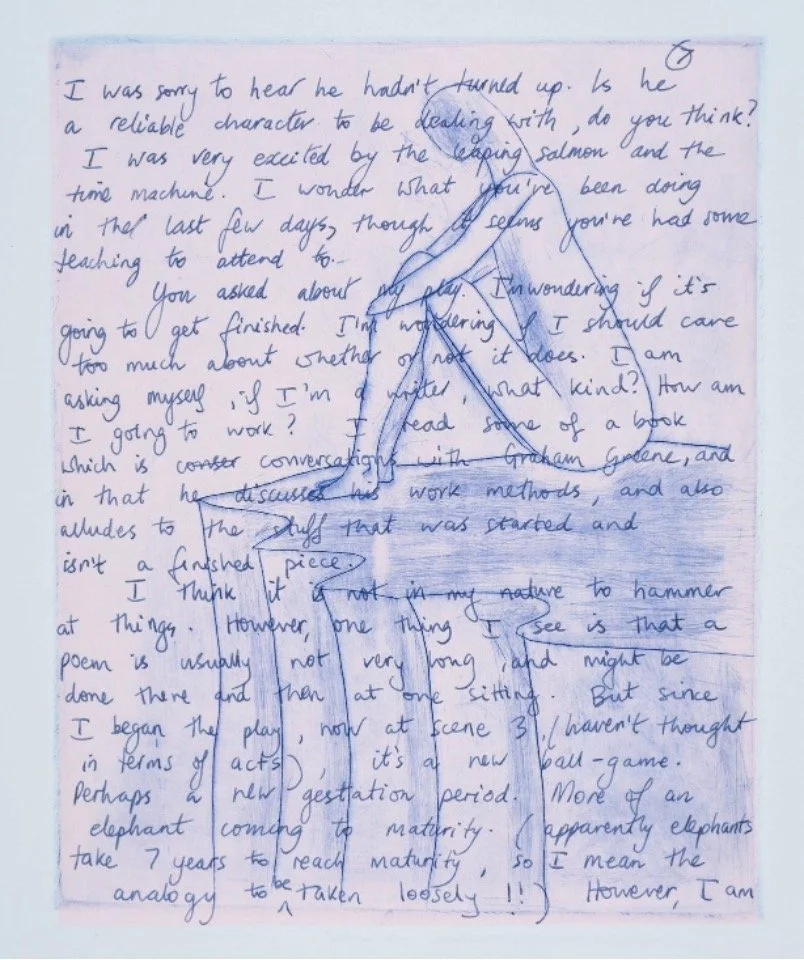 7
I was sorry to hear he hadn't turned up. Is he
a reliable character to be dealing with, do you think?
I was very excited by the leaping salmon and the
time machine. I wonder what you've been doing
in the last few days, though it seems you've had some
teaching to attend to.
You asked about my play. I'm wondering if it's
going to get finished. I'm wondering if I should care
too much about whether or not it does. I am
asking myself, if I'm a writer, what kind? How am
I going to work? I read some of a book
which is conser conversations with Graham Greene, and
in that he discusses his work methods, and also
alludes to the stuff that was started and
isn't a finished piece.
I think it is not in my nature to hammer
at things. However, one thing I see is that a
poem is usually not very long, and might be
done there and then at one sitting. But since
I began the play, now at scene 3, (haven't thought
in terms of acts), it's a new ball-game.
Perhaps a new gestation period. More of an
elephant coming to maturity. (apparently elephants
take 7 years to reach maturity, so I mean the
analogy to be taken loosely!!) However, I am